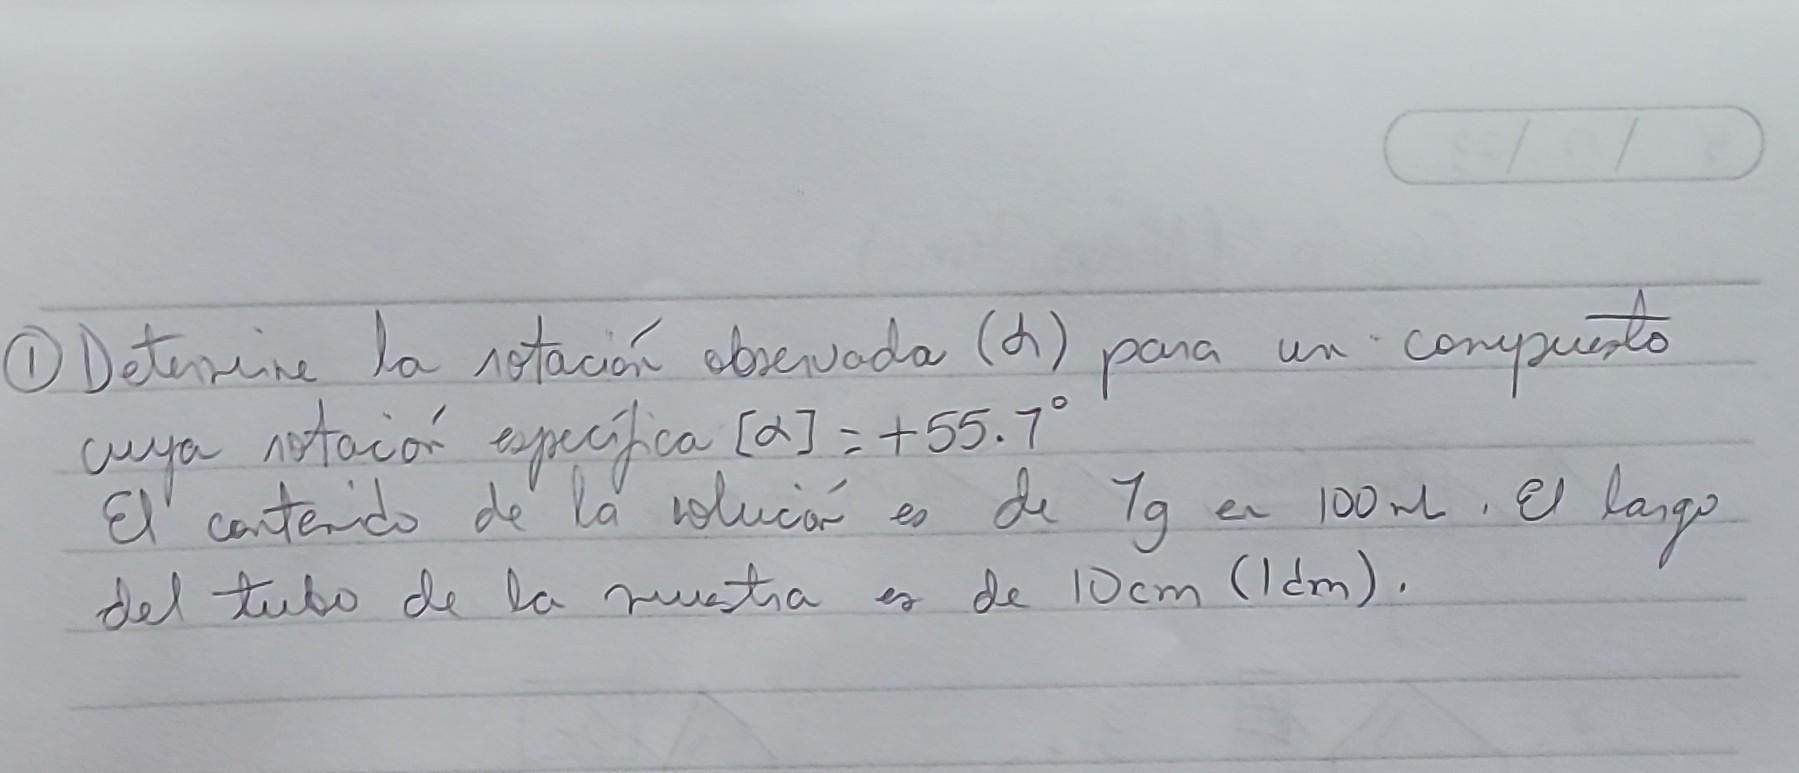 ① Determine la rotación observada (α) para un compuesto
cuya rotación específica [α] = +55.7°
El contenido de la solución es de 7g en 100 mL. El largo
del tubo de la muestra es de 10cm (1dm).